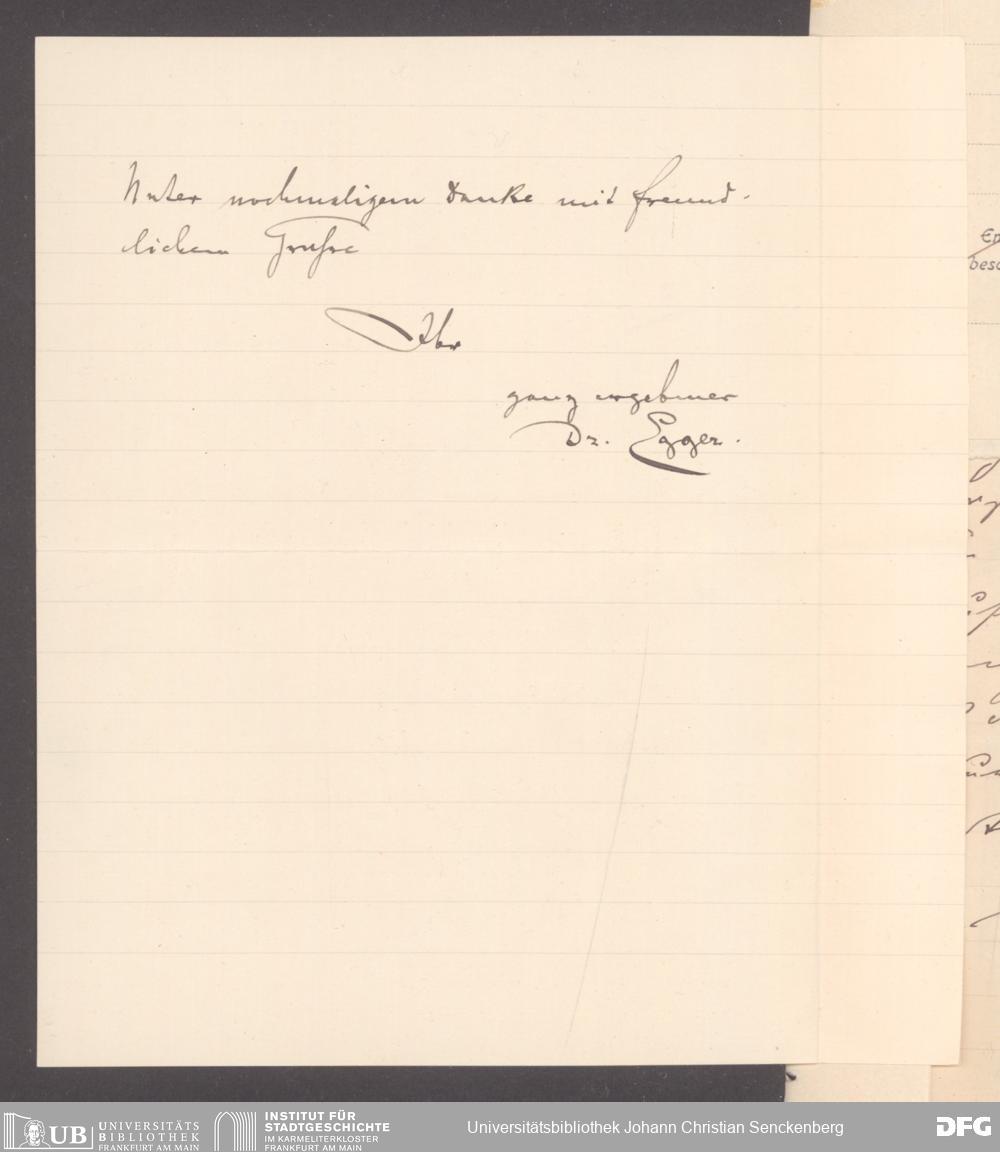 Unter nochmaligem Danke mit freund-
lichem Gruße
Ihr
ganz ergebener
Dr. Egger.
UB UNIVERSITÄTS
BIBLIOTHEK
FRANKFURT AM MAIN
INSTITUT FÜR
STADTGESCHICHTE
IM KARMELITERKLOSTER
FRANKFURT AM MAIN
Universitätsbibliothek Johann Christian Senckenberg
DFG